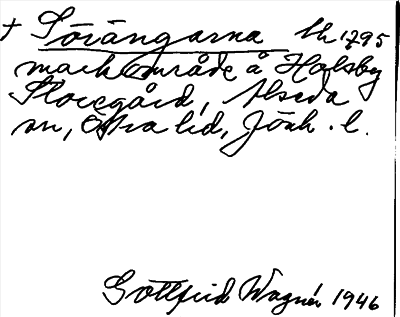 † Sörängarna lh 1795
markområde å Holsby
Storegård, Alseda
sn, Östra hd, Jönk. l.
Gottfrid Wagnér 1946